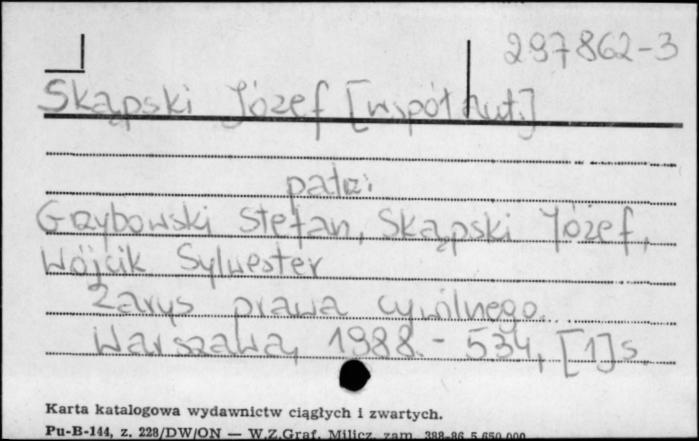 297862-3
Skąpski Józef [współaut.]
patrz:
Grzybowski Stefan, Skąpski Józef,
Wójcik Sylwester
Zarys prawa cywilnego.
Warszawa, 1988. - 534, [1] s.
Karta katalogowa wydawnictw ciągłych i zwartych.
Pu-B-144, z. 228/DW/ON — W.Z.Graf. Milicz, zam. 388-86 5.650.000